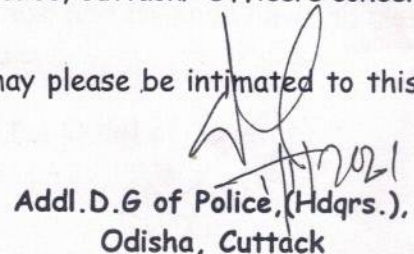 Cuttack. Officers
may please be intimated to this
2021
Addl.D.G of Police,(Hdqrs.),
Odisha, Cuttack